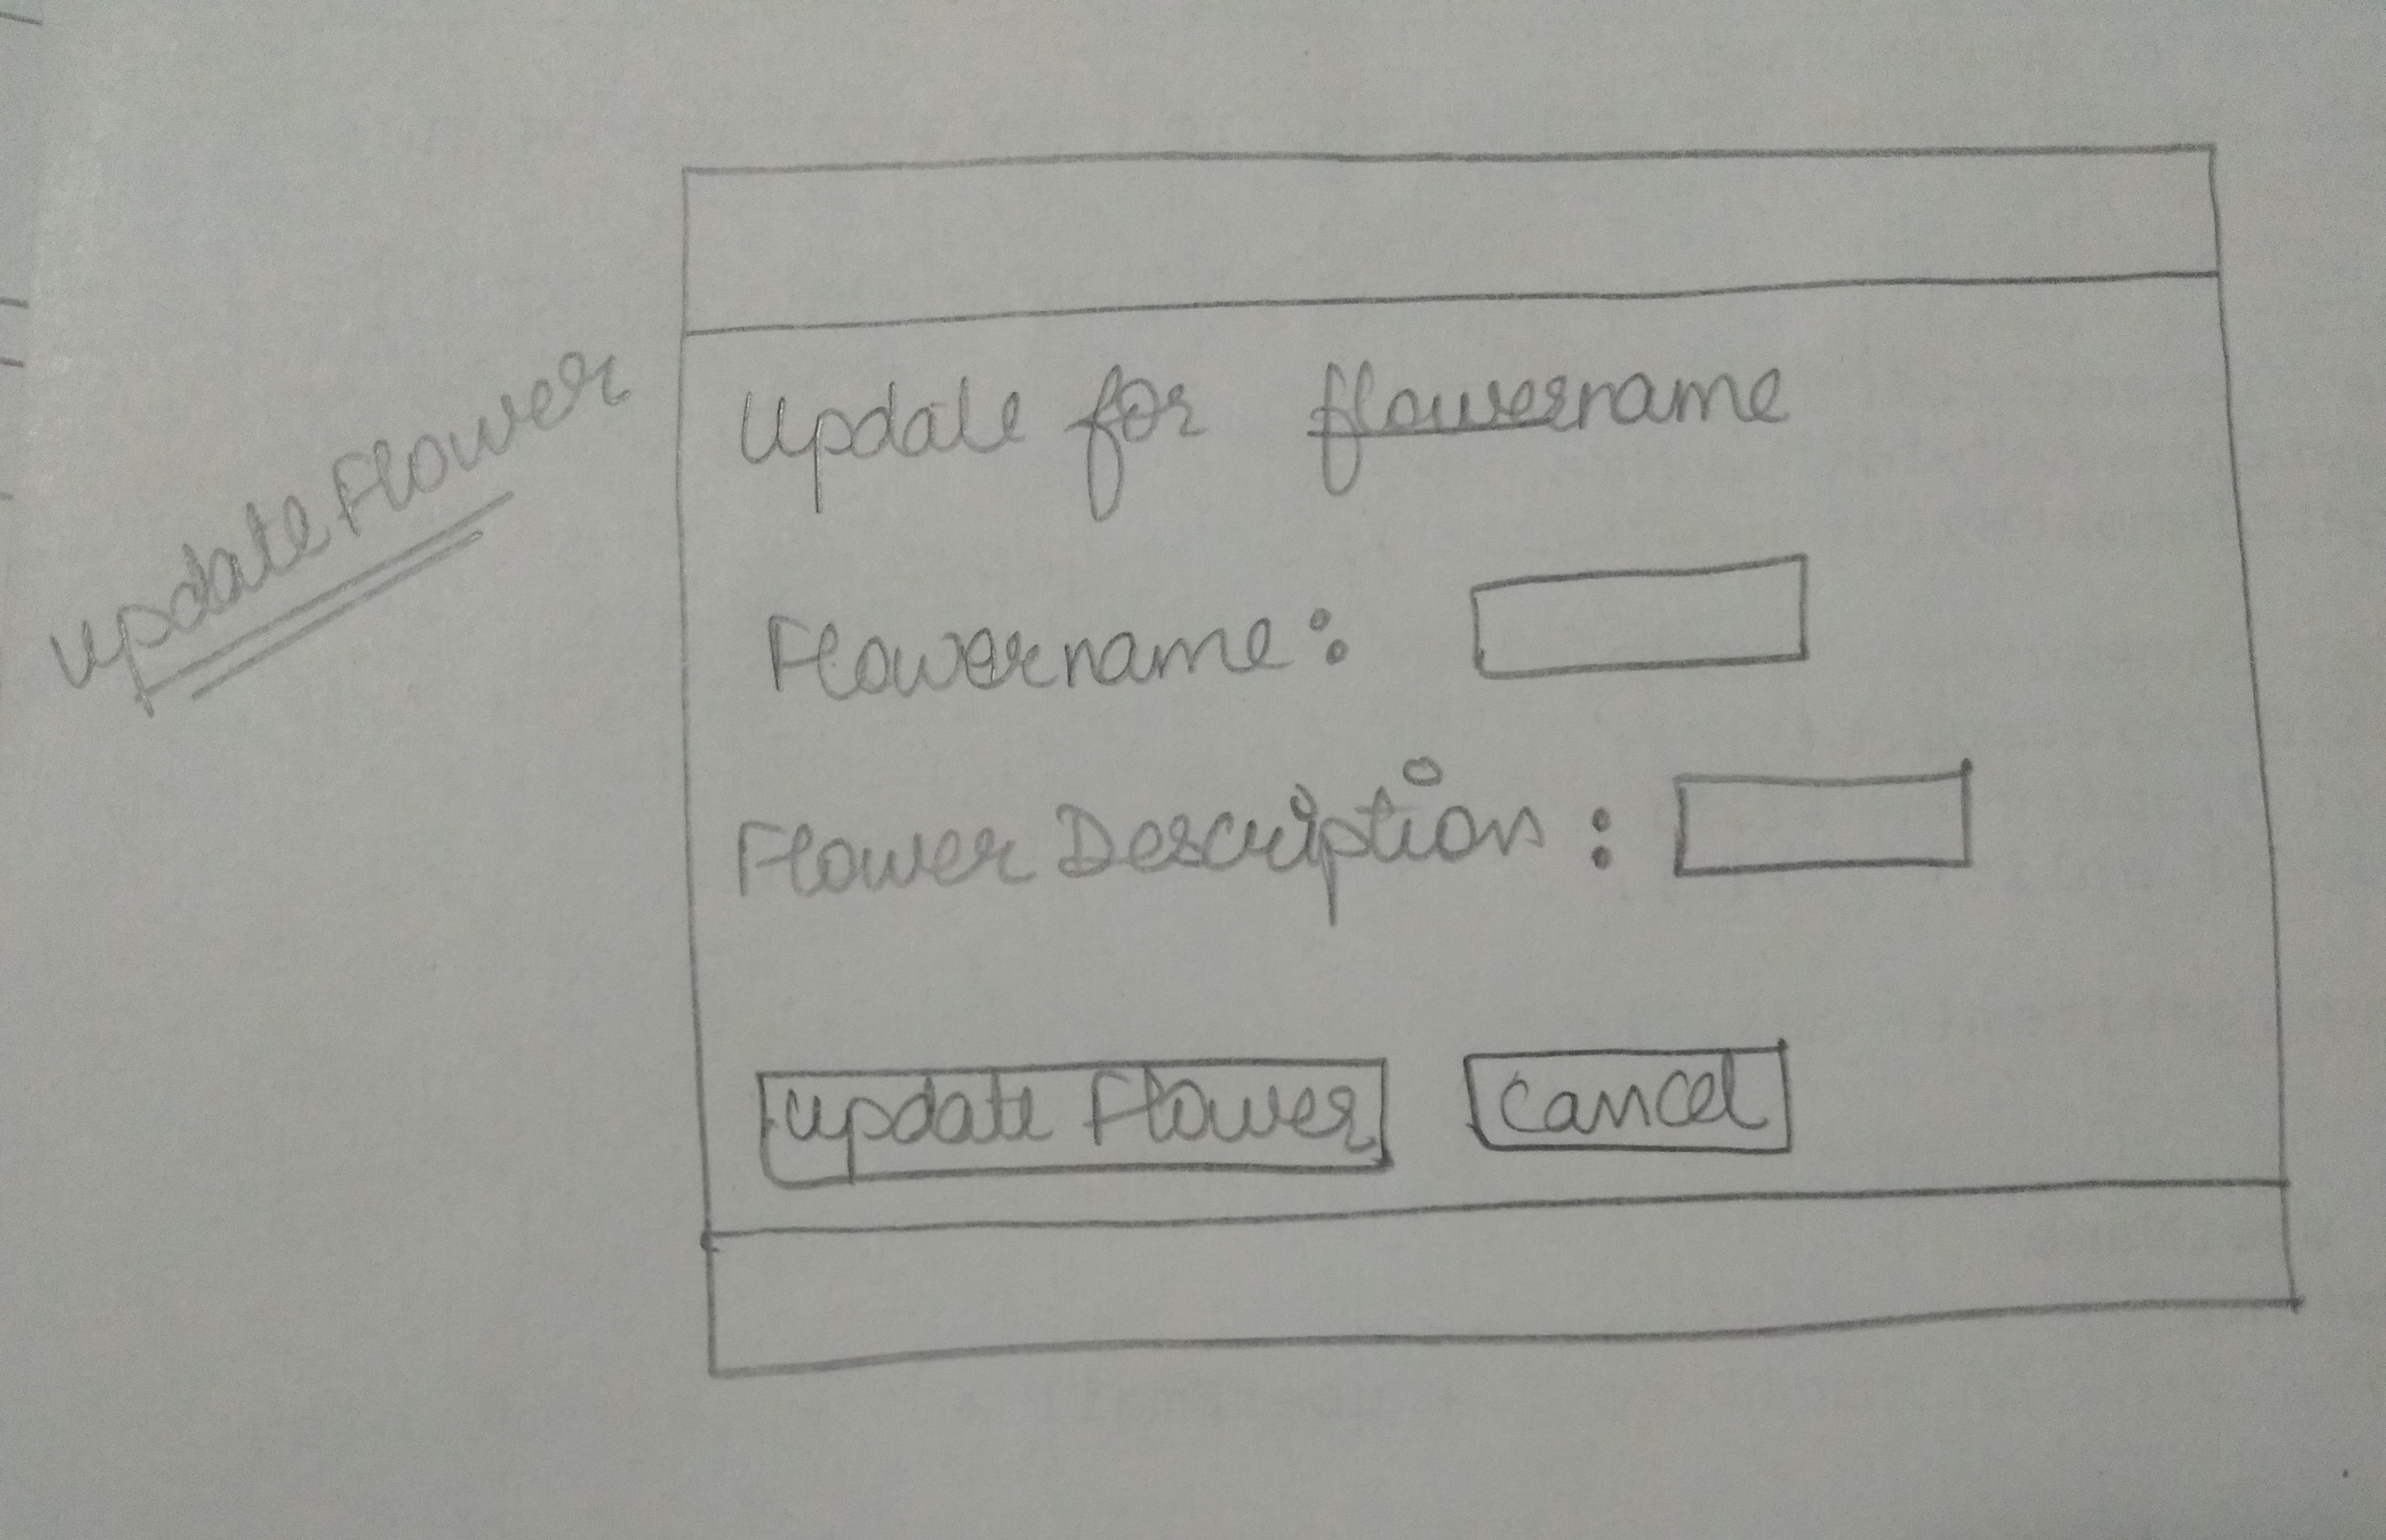 updateFlower
Update for flowername
Flowername:
Flower Description :
update Flower
cancel